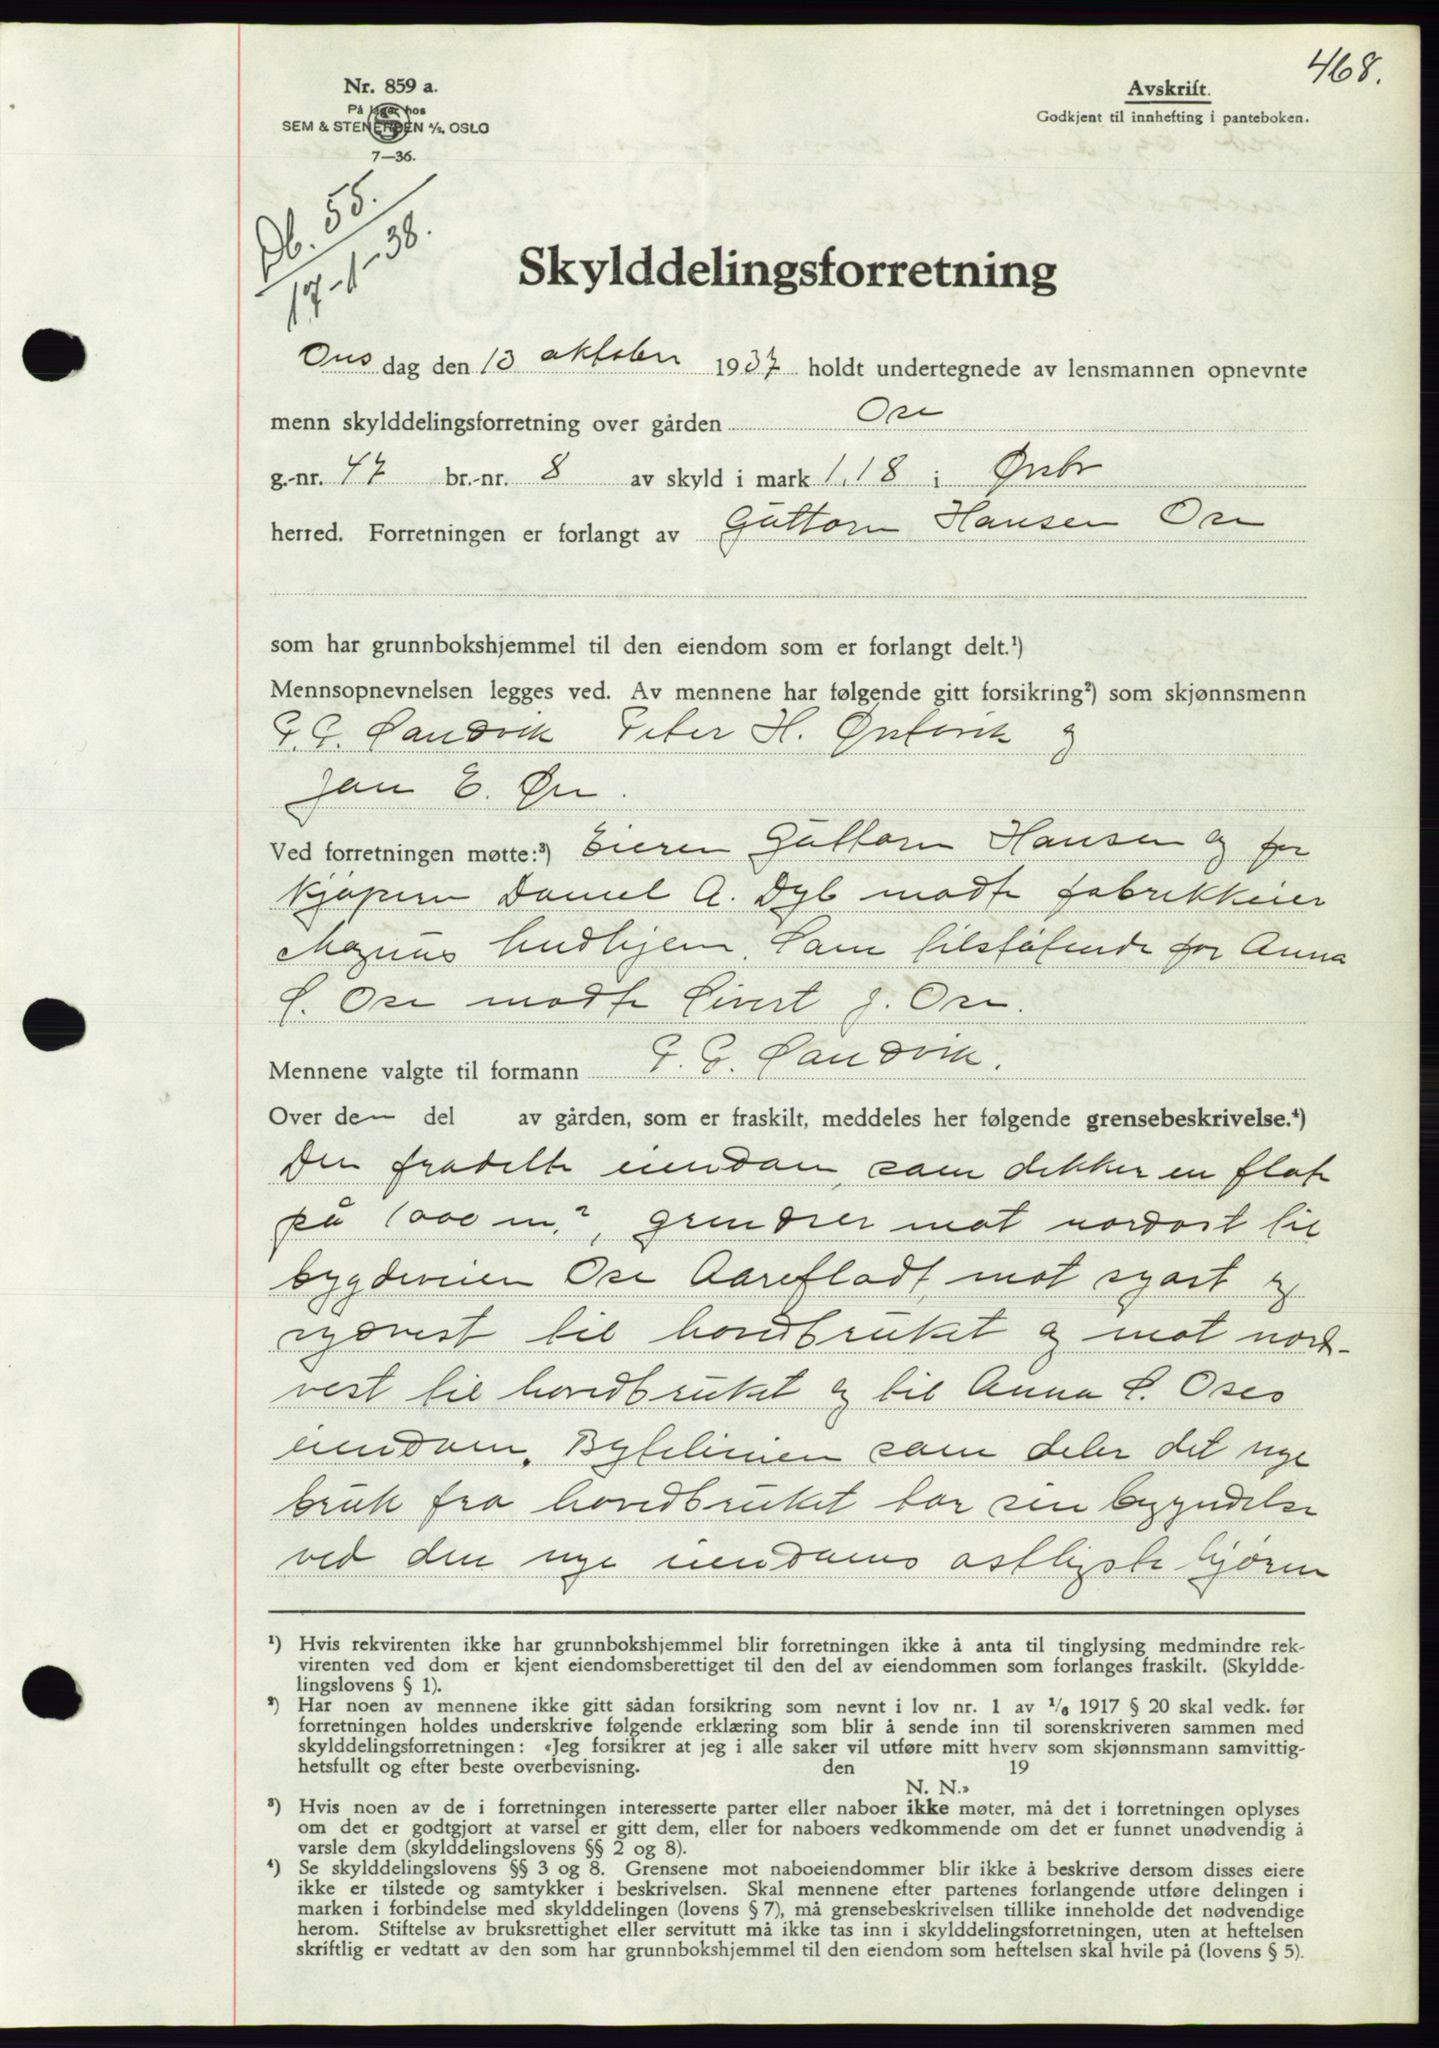 468.
Nr. 859 a.
På lager hos
SEM & STENERSEN A/S, OSLO
7—36.
Avskrift.
Godkjent til innhefting i panteboken.
Db. 55.
17-1-38.
Skylddelingsforretning
Ons dag den 13 oktober 1937 holdt undertegnede av lensmannen opnevnte
menn skylddelingsforretning over gården Ose
g.-nr. 47 br.-nr. 8 av skyld i mark 1,18 i Ørsta
herred. Forretningen er forlangt av Guttorm Hansen Ose
som har grunnbokshjemmel til den eiendom som er forlangt delt.¹)
Mennsopnevnelsen legges ved. Av mennene har følgende gitt forsikring²) som skjønnsmenn
P. P. Sandvik Peter H. Ørstavik og
Jan E. Øen.
Ved forretningen møtte:³) Eieren Guttorm Hansen og for
kjøperen Daniel A. Dyb mødte fabrikkeier
Magnus Lindhjem. Som tilstøtende for Anna
S. Ose mødte Sivert J. Ose.
Mennene valgte til formann P. P. Sandvik.
Over den del av gården, som er fraskilt, meddeles her følgende grensebeskrivelse.⁴)
Den fradelte eiendom, som dekker en flate
på 1000 m.², grendser mot nordost til
bygdeveien Ose Aarefladt, mot syost og
sydvest til hovedbruket og mot nord-
vest til hovedbruket og til Anna S. Oses
eiendom. Bytelinien som deler det nye
bruk fra hovedbruket tar sin begyndelse
ved den nye eiendoms østligste hjørne
¹) Hvis rekvirenten ikke har grunnbokshjemmel blir forretningen ikke å anta til tinglysing medmindre rek-
virenten ved dom er kjent eiendomsberettiget til den del av eiendommen som forlanges fraskilt. (Skyldde-
lingslovens § 1).
²) Har noen av mennene ikke gitt sådan forsikring som nevnt i lov nr. 1 av ¹/₈ 1917 § 20 skal vedk. før
forretningen holdes underskrive følgende erklæring som blir å sende inn til sorenskriveren sammen med
skylddelingsforretningen: «Jeg forsikrer at jeg i alle saker vil utføre mitt hverv som skjønnsmann samvittig-
hetsfullt og efter beste overbevisning. den 19
N. N.»
³) Hvis noen av de i forretningen interesserte parter eller naboer ikke møter, må det i forretningen oplyses
om det er godtgjort at varsel er gitt dem, eller for naboers vedkommende om det er funnet unødvendig å
varsle dem (skylddelingslovens §§ 2 og 8).
⁴) Se skylddelingslovens §§ 3 og 8. Grensene mot naboeiendommer blir ikke å beskrive dersom disses eiere
ikke er tilstede og samtykker i beskrivelsen. Skal mennene efter partenes forlangende utføre delingen i
marken i forbindelse med skylddelingen (lovens § 7), må grensebeskrivelsen tillike inneholde det nødvendige
herom. Stiftelse av bruksrettighet eller servitutt må ikke tas inn i skylddelingsforretningen, uten at heftelsen
skriftlig er vedtatt av den som har grunnbokshjemmel til den eiendom som heftelsen skal hvile på (lovens § 5).